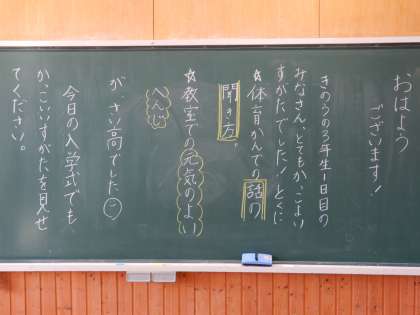 おはよう
ございます!
きのうの3年生1日目の
みなさん、とてもかっこよい
すがたでした!とくに
☆体育かんでの話の
聞き方。
☆教室での元気のよい
へんじ
が、さい高でした☺
今日の入学式でも、
かっこいいすがたを見せ
てください。